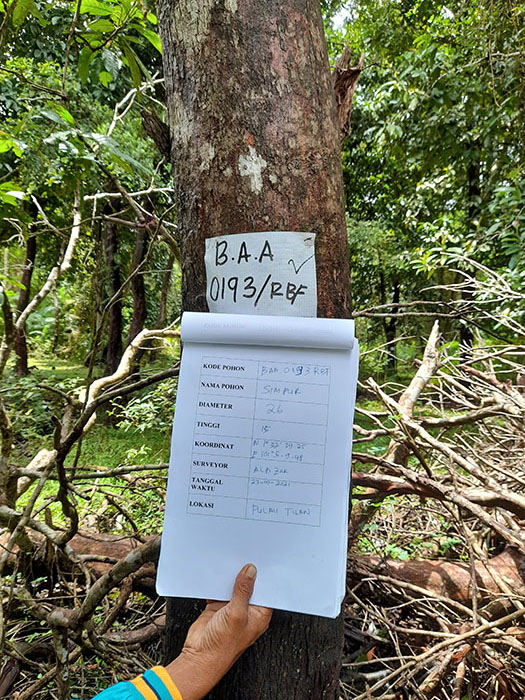 B.A.A ✓
0193/RBF
KODE POHON BAA 0193 RBF
NAMA POHON SIMPUR
DIAMETER 26
TINGGI 15
KOORDINAT
SURVEYOR
TANGGAL WAKTU
LOKASI PULAU TILAN